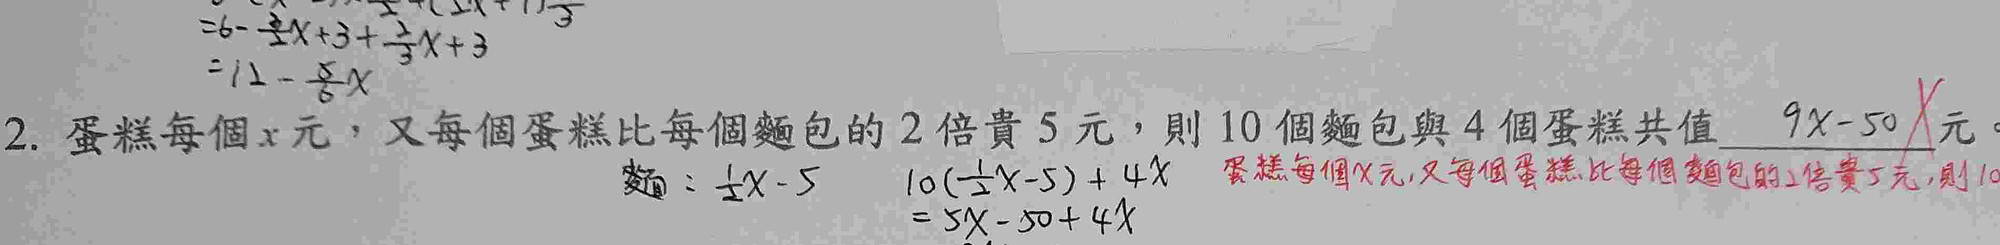 =6-3/2x+3+2/3x+3
=12-5/6x
2. 蛋糕每個x元，又每個蛋糕比每個麵包的2倍貴5元，則10個麵包與4個蛋糕共值 9x-50 元。
麵：1/2x-5 10(1/2x-5)+4x 蛋糕每個x元,又每個蛋糕比每個麵包的2倍貴5元,則10
=5x-50+4x